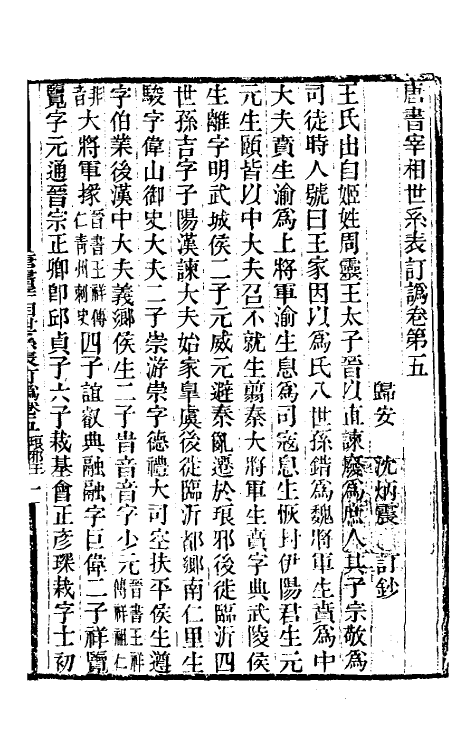 唐書宰相世系表訂譌卷第五
歸安　沈炳震　訂鈔
王氏出自姬姓周靈王太子晉以直諫廢爲庶人其子宗敬爲
司徒時人號曰王家因以爲氏八世孫錯爲魏將軍生賁爲中
大夫賁生渝爲上將軍渝生息爲司寇息生恢封伊陽君生元
元生頤皆以中大夫召不就生翦秦大將軍生賁字典武陵侯
生離字明武城侯二子元威元避秦亂遷於琅邪後徙臨沂四
世孫吉字子陽漢諫大夫始家皐虞後徙臨沂都鄉南仁里生
駿字偉山御史大夫二子崇游崇字德禮大司空扶平侯生遵
字伯業後漢中大夫義鄉侯生二子旹音音字少元晉書王祥傳祥祖仁
非音大將軍掾晉書王祥傳仁青州刺史四子誼叡典融融字巨偉二子祥覽
覽字元通晉宗正卿卽邱貞子六子裁基會正彥琛裁字士初